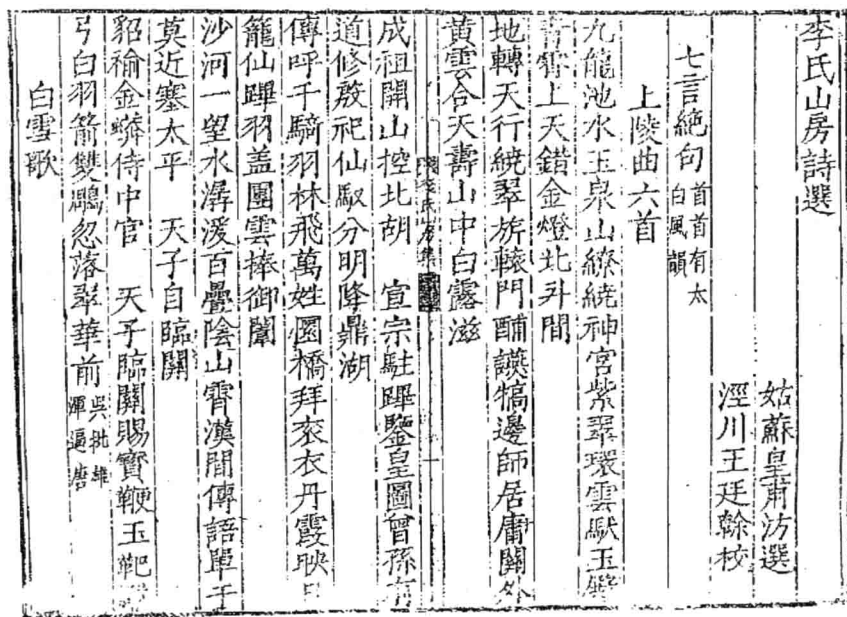 李氏山房詩選
姑蘇皇甫汸選
涇川王廷榦校
七言絶句 首首有太
白風韻
上陵曲六首
九龍池水玉泉山繚繞神宮紫翠環雲馭玉
青霄上天錯金燈北斗間
地轉天行繞翠旂轅門酺讌犒邊師居庸關外
黃雲合天壽山中白露滋
李氏
集
成祖開山控北胡 宣宗駐蹕鑒皇圖曾孫有
道修殷祀仙馭分明降鼎湖
傳呼千騎羽林飛萬姓圜橋拜衮衣丹霞映日
籠仙蹕羽盖團雲捧御闈
沙河一望水潺湲百疊陰山霄漢間傳語單于
莫近塞太平 天子自臨關
貂褕金蟒侍中官 天子臨關賜寶鞭玉靶
弓白羽箭雙鵰忽落翠華前 吳批雄
渾逼唐
白雪歌